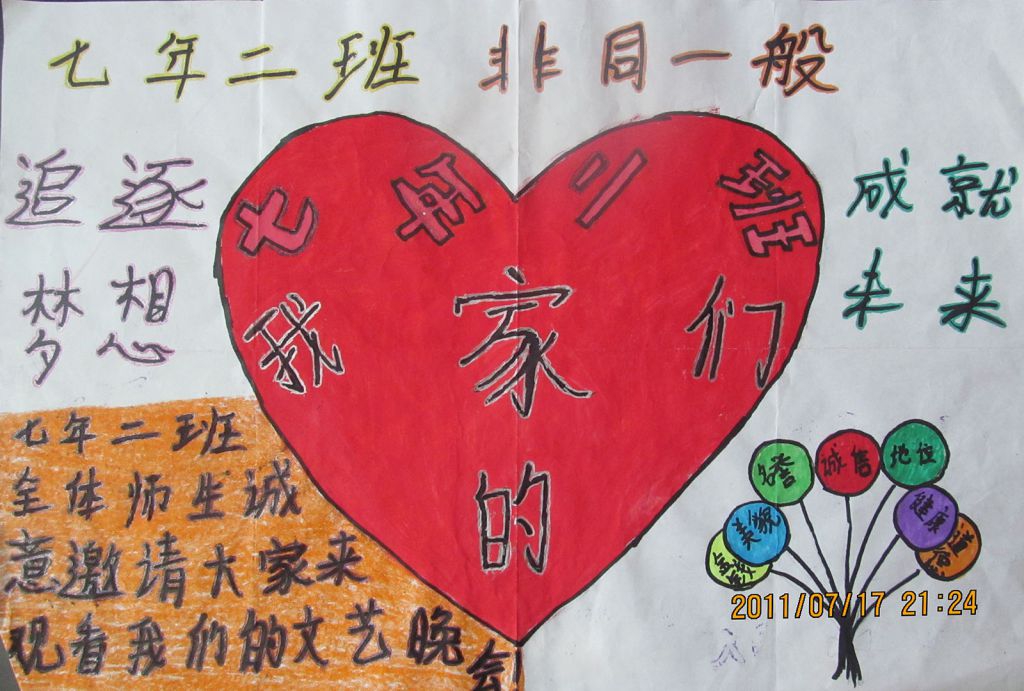 七年二班 非同一般
追逐
梦想
成就
未来
七年二班
我 家 们
的
七年二班
全体师生诚
意邀请大家来
观看我们的文艺晚
会!
名誉
地位
美貌
健康
金钱
2011/07/17 21:24